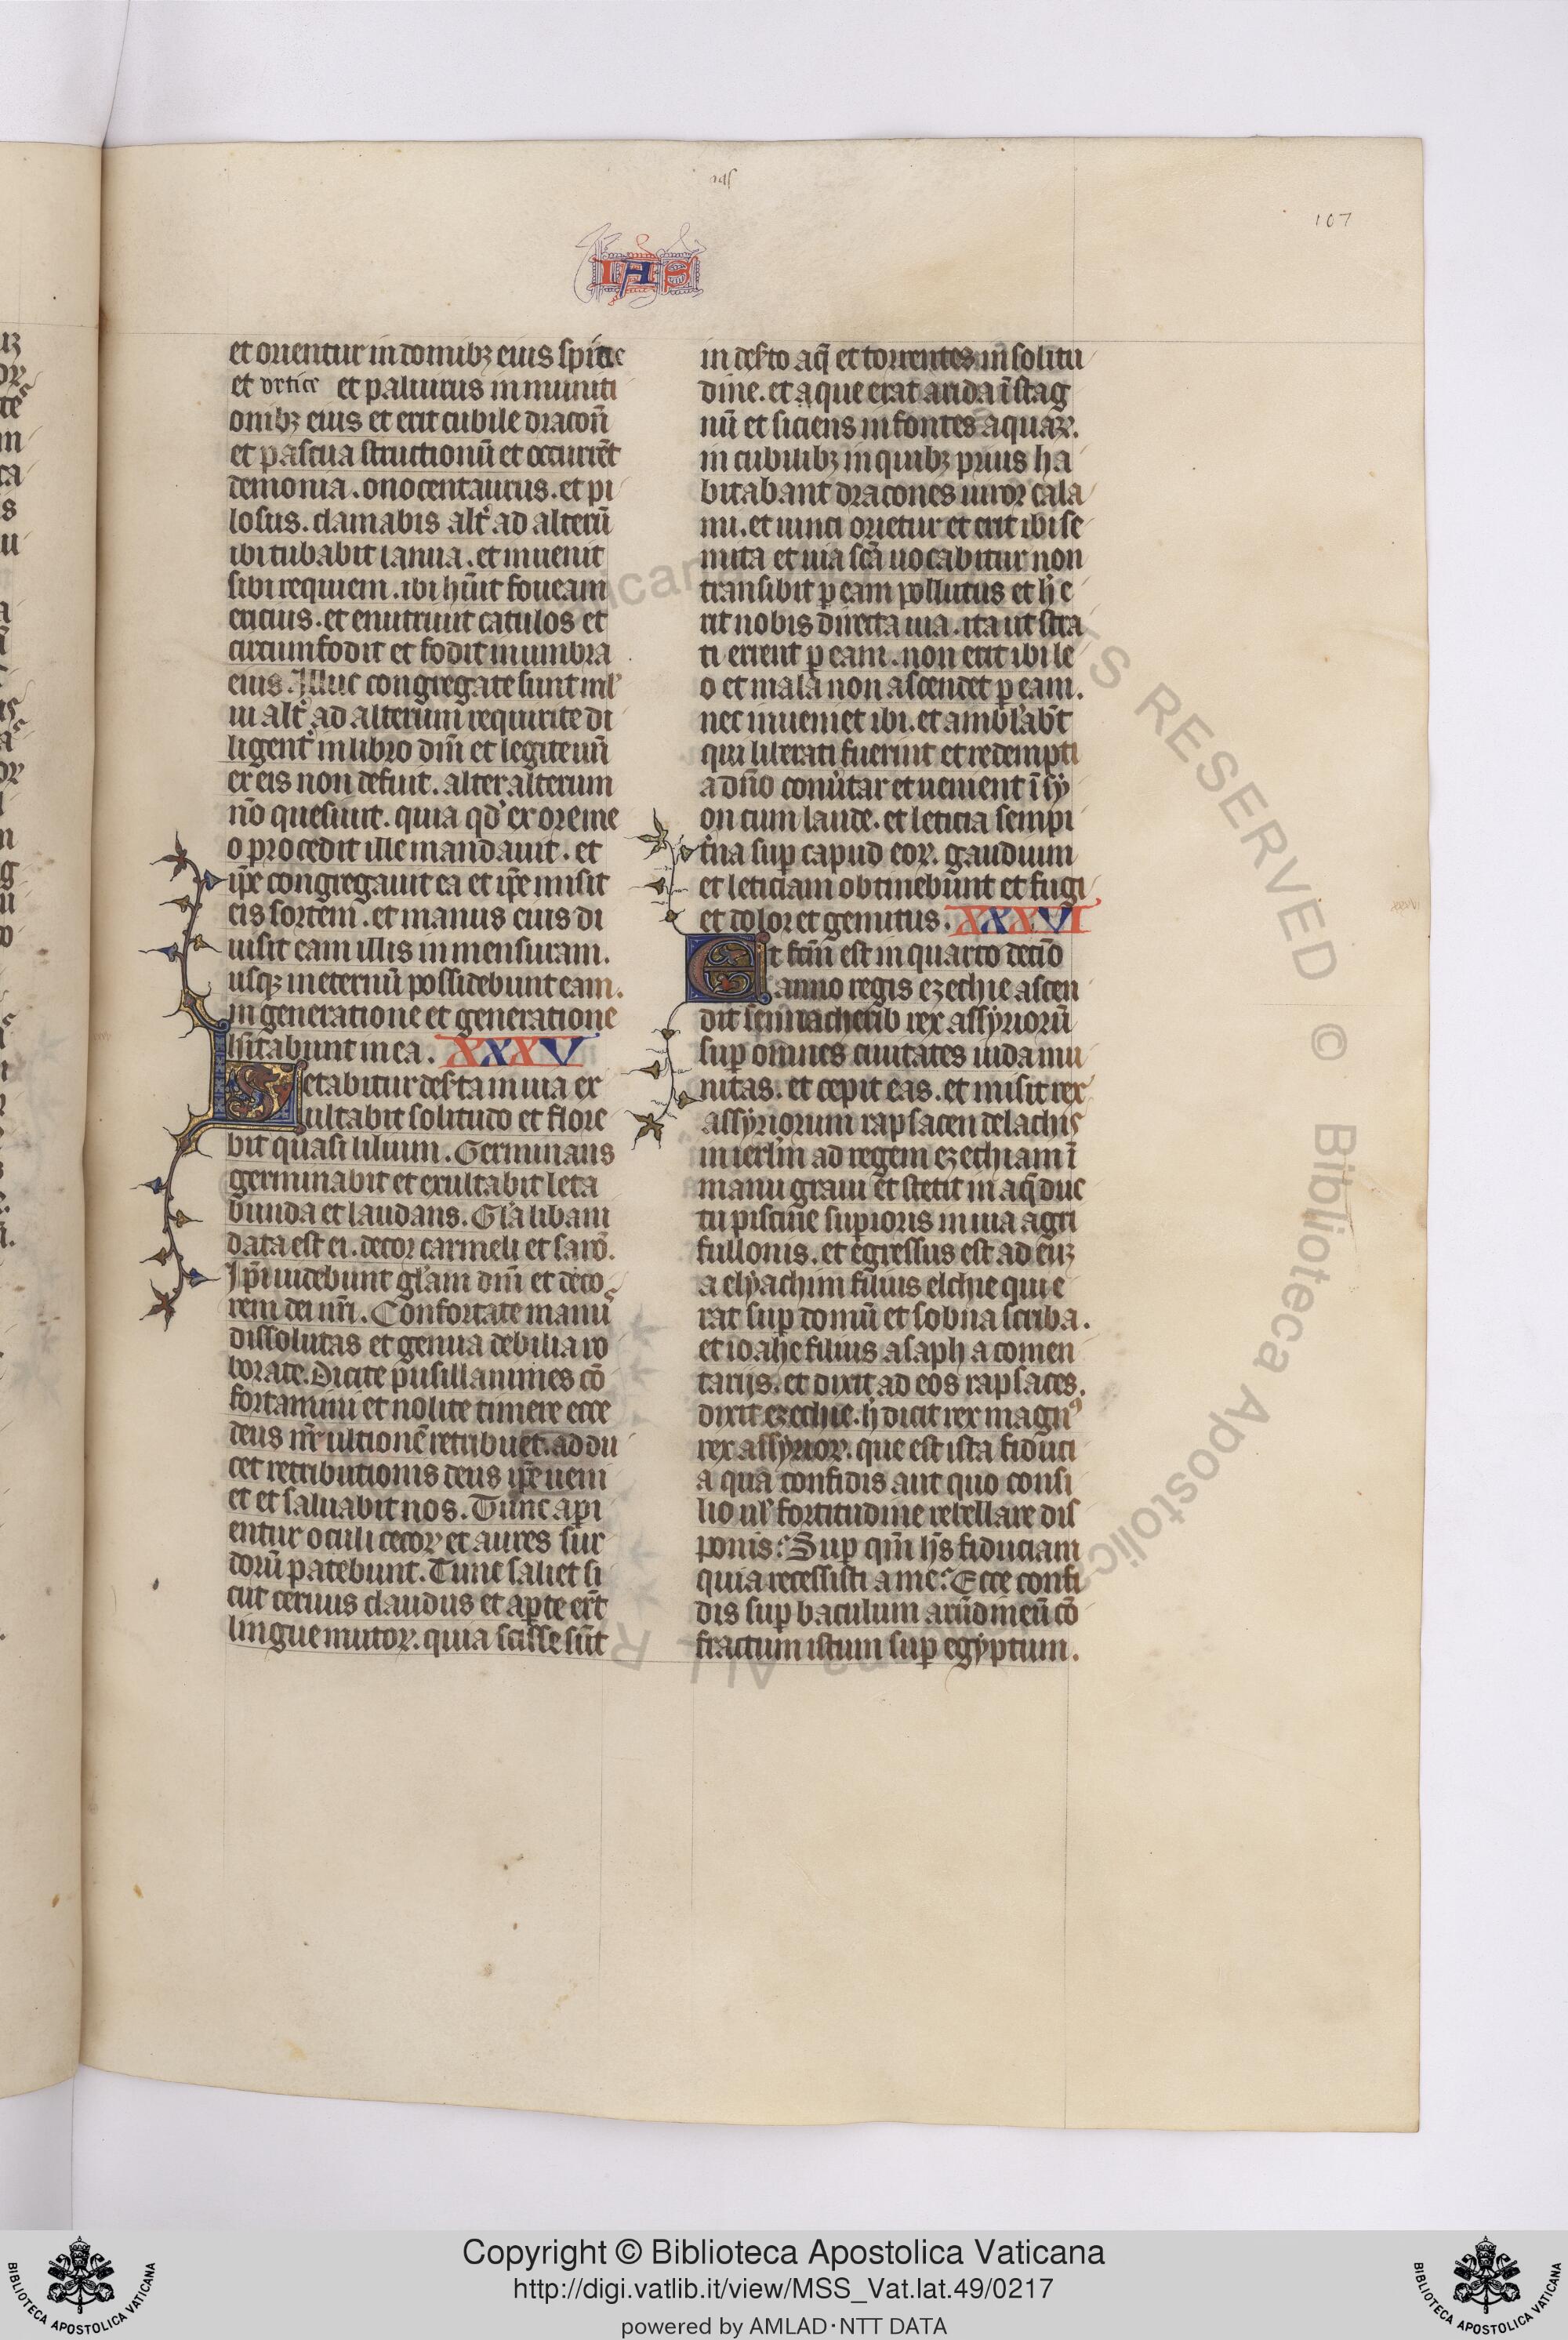 ysa
107
IAS
et orientur in domibꝫ eius spine
et vrtice et paliurus in muniti
onibꝫ eius et erit cubile draconū
et pascua structionū et occurrēt
demonia . onocentaurus . et pi
losus . clamabis alt᷑ ad alterū
ibi cubabit lamia . et inuenit
sibi requiem . ibi hūit foueam
ericius . et enutriuit catulos et
circumfodit et fodit in umbra
eius . Illuc congregate sunt mil
ui alt᷑ ad alterum requirite di
ligent᷑ in libro dñi et legite unū
ex eis non defuit . alter alterum
nō quesiuit . quia qd' ex ore me
o procedit ille mandauit . et
ip̄e congregauit ea et ip̄e misit
eis sortem . et manus eius di
uisit eam illis in mensuram .
usqꝫ in eternū possidebunt eam .
in generatione et generatione
h̄itabunt in ea . XXXV
Letabitur des̄ta in uia ex
ultabit solitudo et flore
bit quasi lilium . Germinans
germinabit et exultabit leta
bunda et laudans . Gl'a libani
data est ei . decor carmeli et sarō .
Ip̄i uidebunt gl'am dñi et deco
rem dei nr̄i . Confortate manus
dissolutas et genua debilia ro
borate . Dicite pusillanimes cō
fortamini et nolite timere ecce
deus nr̄ ultionē retribuet . addu
cet retributionis deus ip̄e ueni
et et saluabit nos . Tunc aꝑi
entur oculi cecoꝝ et aures sur
dorū patebunt . Tunc saliet si
cut ceruus claudus et aꝑte er̄t
lingue mutoꝝ . quia scisse sūt
in des̄to aq̄ et torrentes in solitu
dine . et a que erat arida ī stag
nū et siciens in fontes aquaꝝ .
in cubilibꝫ in quibꝫ prius ha
bitabant dracones uiror cala
mi . et iunci orietur et erit ibi se
mita et uia sc̄a uocabitur non
transibit ꝑ eam pollutus et h̄ e
rit nobis directa uia . ita ut stra
ti errent ꝑ eam . non erit ibi le
o et mala non ascendet ꝑ eam .
nec inueniet ibi . et amb'lab̄t
qui liberati fuerint et redempti
a dño conu'tar et uenient ī sy
on cum laude . et leticia sempi
t̄na suꝑ capud eoꝝ . gaudium
et leticiam obtinebunt et fugi
et dolor et gemitus . XXXVI
Et fc̄m est in quarto decīo
anno regis ezechie ascen
dit sennacherib rex assyriorū
suꝑ omnes ciuitates iuda mu
nitas . et cepit eas . et misit rex
assyriorum rapsacen de lachis
in ierl'm ad regem ezechiam ī
manu graui et stetit in aq̄duc
tu piscine suꝑioris in uia agri
fullonis . et egressus est ad eūꝫ
a elyachim filius elchie qui e
rat suꝑ domū et sobna scriba .
et ioahe filius asaph a comen
tarijs . et dixit ad eos rapsaces .
dixit ezechie . h̄ dicit rex magnꝰ
rex assyrioꝝ . que est ista fiduci
a qua confidis aut quo consi
lio ul' fortitudine rebellare dis
ponis : Suꝑ qm̄ h̄s fiduciam
quia recessisti a me : Ecce confi
dis suꝑ baculum arūdineū cō
fractum istum suꝑ egyptum .
xxxvi
ALL RIGHTS RESERVED © Biblioteca Apostolica Vaticana
Copyright © Biblioteca Apostolica Vaticana
http://digi.vatlib.it/view/MSS_Vat.lat.49/0217
powered by AMLAD·NTT DATA
BIBLIOTECA APOSTOLICA VATICANA
BIBLIOTECA APOSTOLICA VATICANA